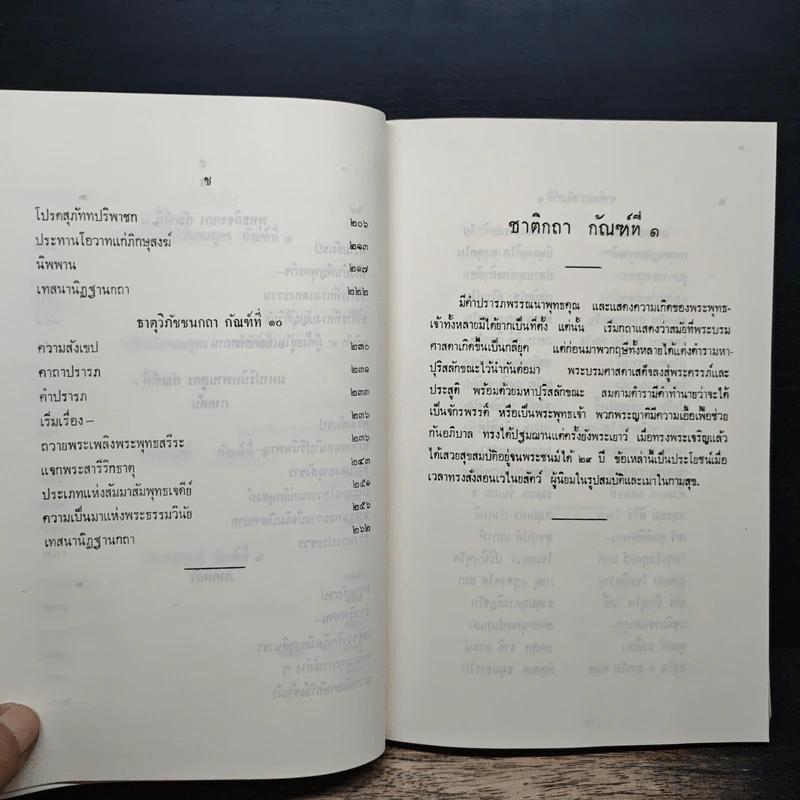 ช
โปรดสุภัททปริพาชก ๒๐๖
ประทานโอวาทแก่ภิกษุสงฆ์ ๒๑๓
นิพพาน ๒๑๗
เทสนานิฏฐานกถา ๒๒๒
ธาตุวิภัชชนกถา กัณฑ์ที่ ๑๐
ความสังเขป ๒๓๐
คาถาปรารภ ๒๓๑
คำปรารภ ๒๓๓
เริ่มเรื่อง– ๒๓๖
ถวายพระเพลิงพระพุทธสรีระ ๒๓๖
แจกพระสารีริกธาตุ ๒๔๓
ประเภทแห่งสัมมาสัมพุทธเจดีย์ ๒๕๑
ความเป็นมาแห่งพระธรรมวินัย ๒๕๖
เทสนานิฏฐานกถา ๒๖๒
ชาติกถา กัณฑ์ที่ ๑
มีคำปรารภพรรณนาพุทธคุณ และแสดงความเกิดของพระพุทธ-
เจ้าทั้งหลายมีได้ยากเป็นที่ตั้ง แต่นั้น เริ่มกถาแสดงว่าสมัยที่พระบรม
ศาสดาเกิดขึ้นเป็นกลียุค แต่ก่อนมาพวกฤษีทั้งหลายได้แต่งตำรามหา-
ปุริสลักขณะไว้นำกันต่อมา พระบรมศาสดาเสด็จลงสู่พระครรภ์และ
ประสูติ พร้อมด้วยมหาปุริสลักขณะ สมตามตำรามีคำทำนายว่าจะได้
เป็นจักรพรรดิ์ หรือเป็นพระพุทธเจ้า พวกพระญาติมีความเอื้อเฟื้อช่วย
กันอภิบาล ทรงได้ปฐมฌานแต่ครั้งยังพระเยาว์ เมื่อทรงพระเจริญแล้ว
ได้เสวยสุขสมบัติอยู่จนพระชนม์ได้ ๒๙ ปี ข้อเหล่านี้เป็นประโยชน์เมื่อ
เวลาทรงสั่งสอนเวไนยสัตว์ ผู้นิยมในรูปสมบัติและเมาในกามสุข.